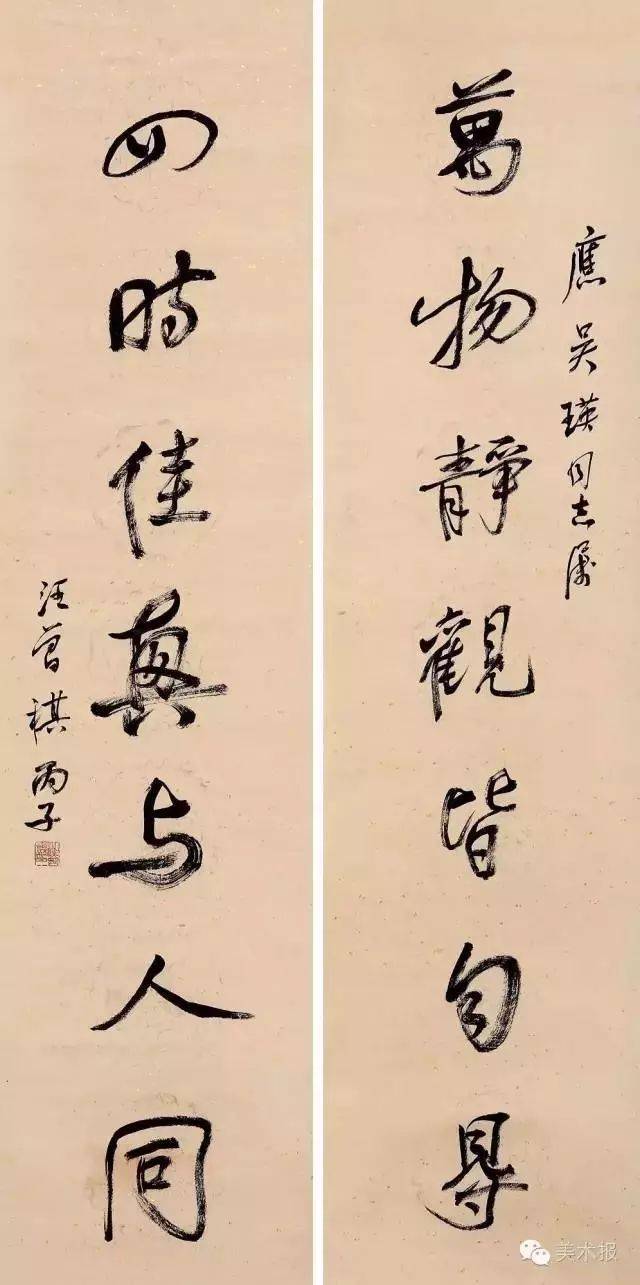 應吴瑛同志属
萬物靜觀皆自得
四時佳興与人同
汪曾祺 丙子
美术报